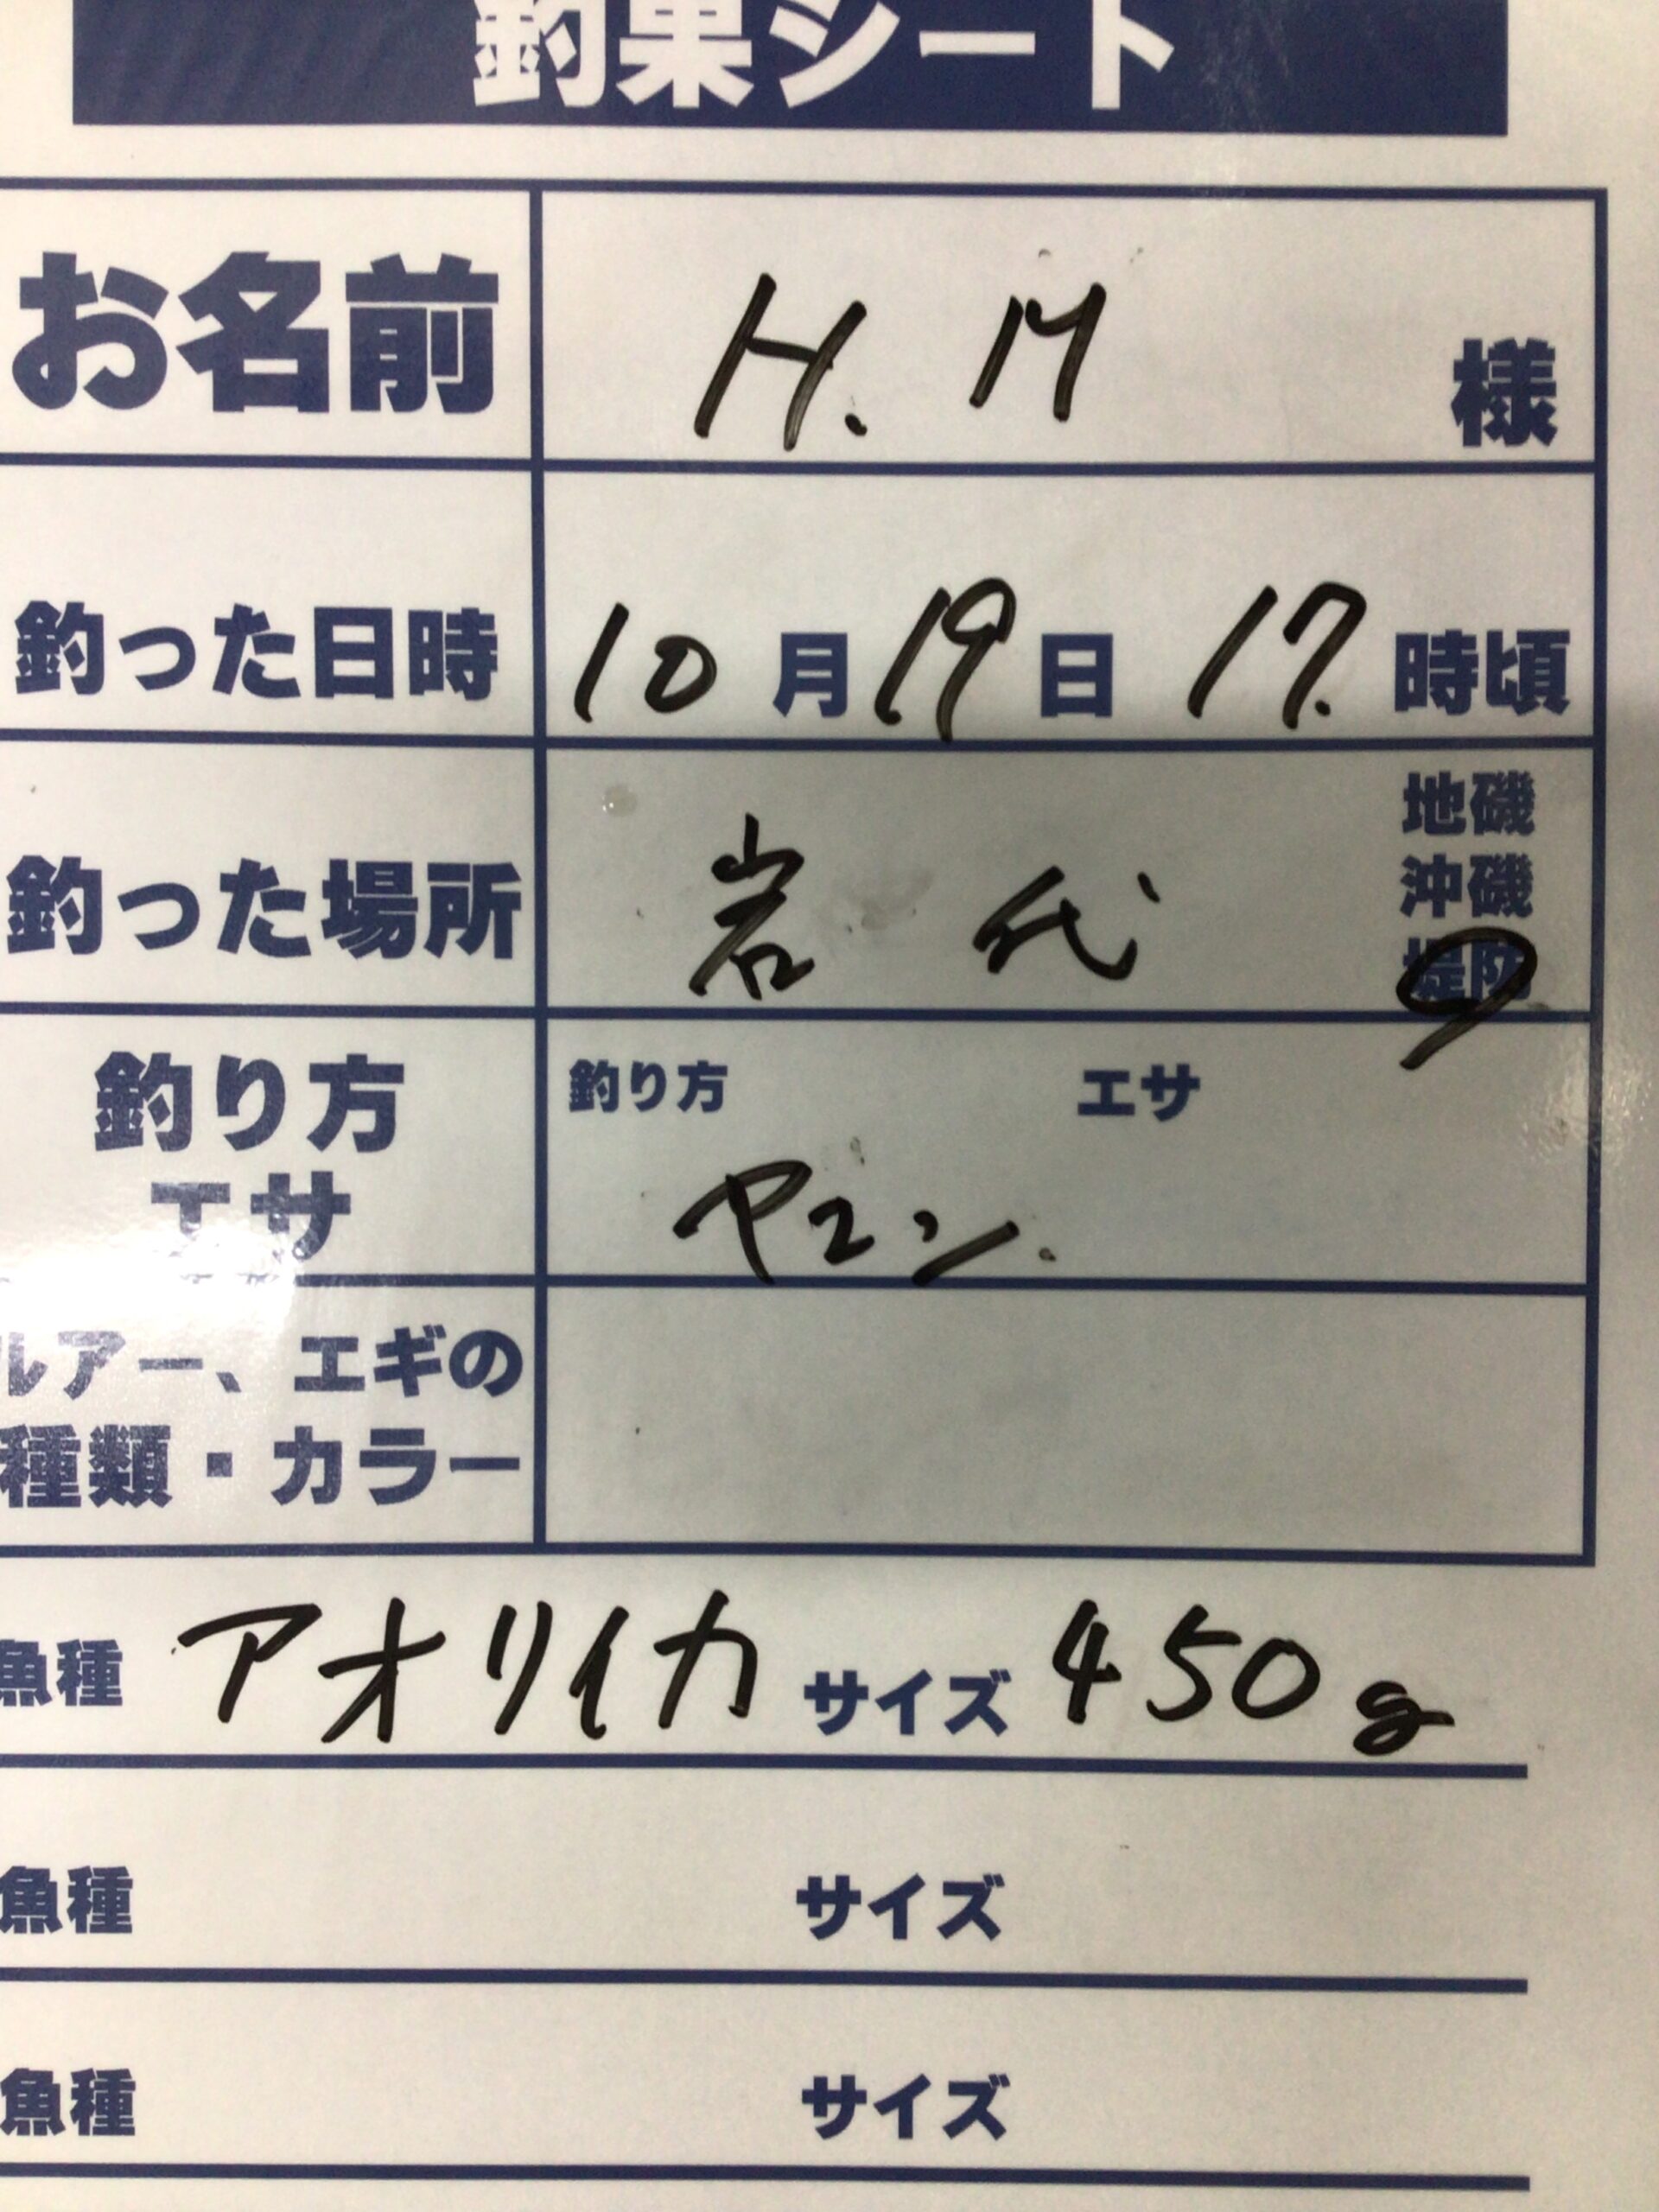 釣果シート
お名前 H. M 様
釣った日時 10月19日 17.時頃
釣った場所 岩代 地磯
沖磯
堤防
釣り方 釣り方 エサ
エサ ヤエン.
ルアー、エギの
種類・カラー
魚種 アオリイカ サイズ 450g
魚種 サイズ
魚種 サイズ